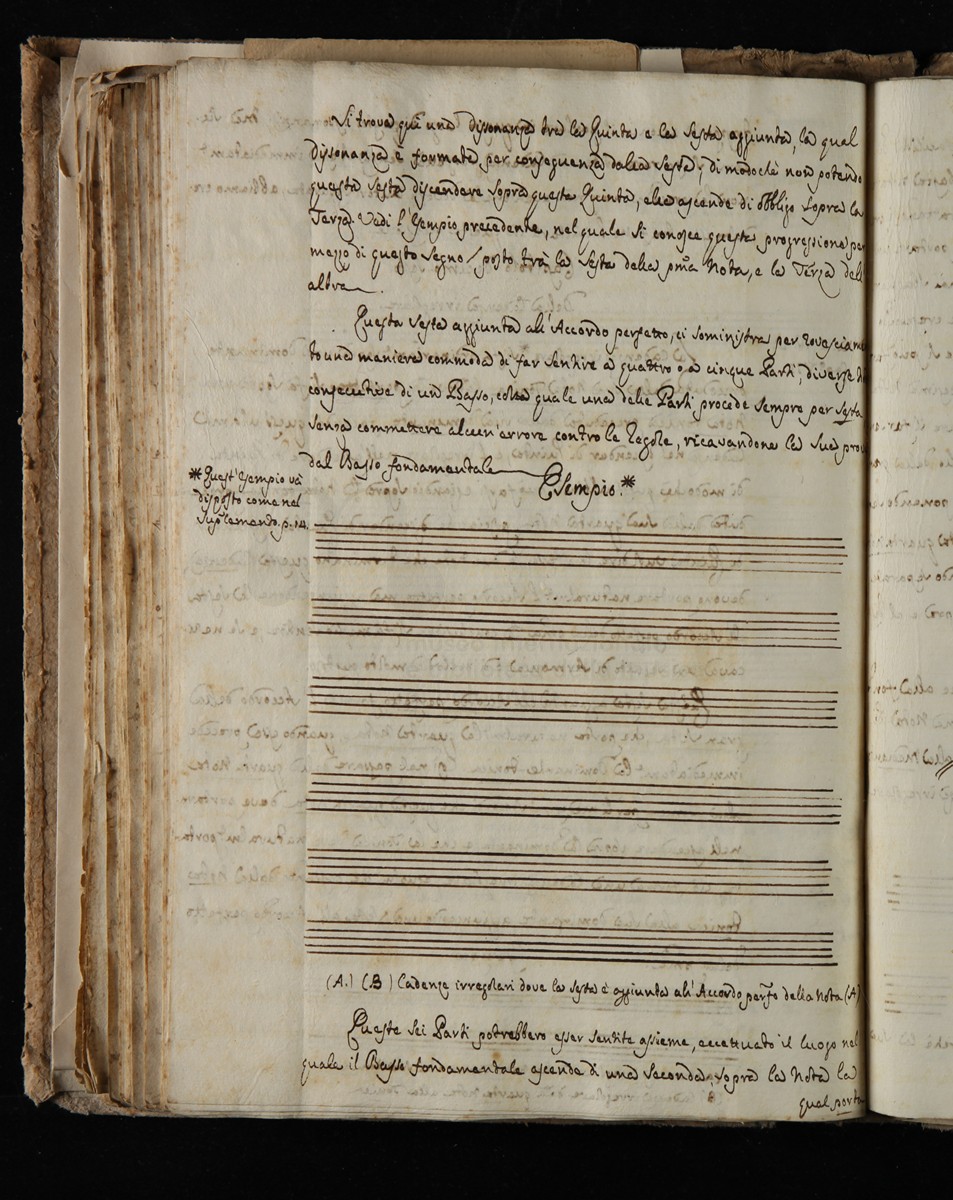 Si trova quì una dissonanza tra la Quinta e la Sesta aggiunta, la qual
dissonanza è formata per conseguenza dalla Sesta; di modochè non potendo
questa Sesta discendere sopra questa Quinta, ella ascende di obbligo sopra la
Terza. Vedi l'Esempio precedente, nel quale si conosce questa progressione per
mezzo di questo segno / posto trà la Sesta della pma Nota, e la Terza dell
altra.
Questa Sesta aggiunta all'Accordo perfetto, ci soministra per rovesciam
to una maniera commoda di far sentire a quattro o a cinque Parti, diverse
consecutive di un Basso, colla quale una delle Parti procede sempre per Sesta
senza commettere alcun'errore contro le Regole, ricavandone la sua prov
dal Basso fondamentale
Esempio.*
*Quest'Esempio và
disposto come nel
Suplemento. p. 14.
(A.) (B) Cadenze irregolari dove la Sesta è aggiunta all'Accordo perfto della Nota (A)
Queste sei Parti potrebbero esser sentite assieme, eccettuato il luogo nel
quale il Basso fondamentale ascende di una Seconda, sopra la Nota la
qual porta